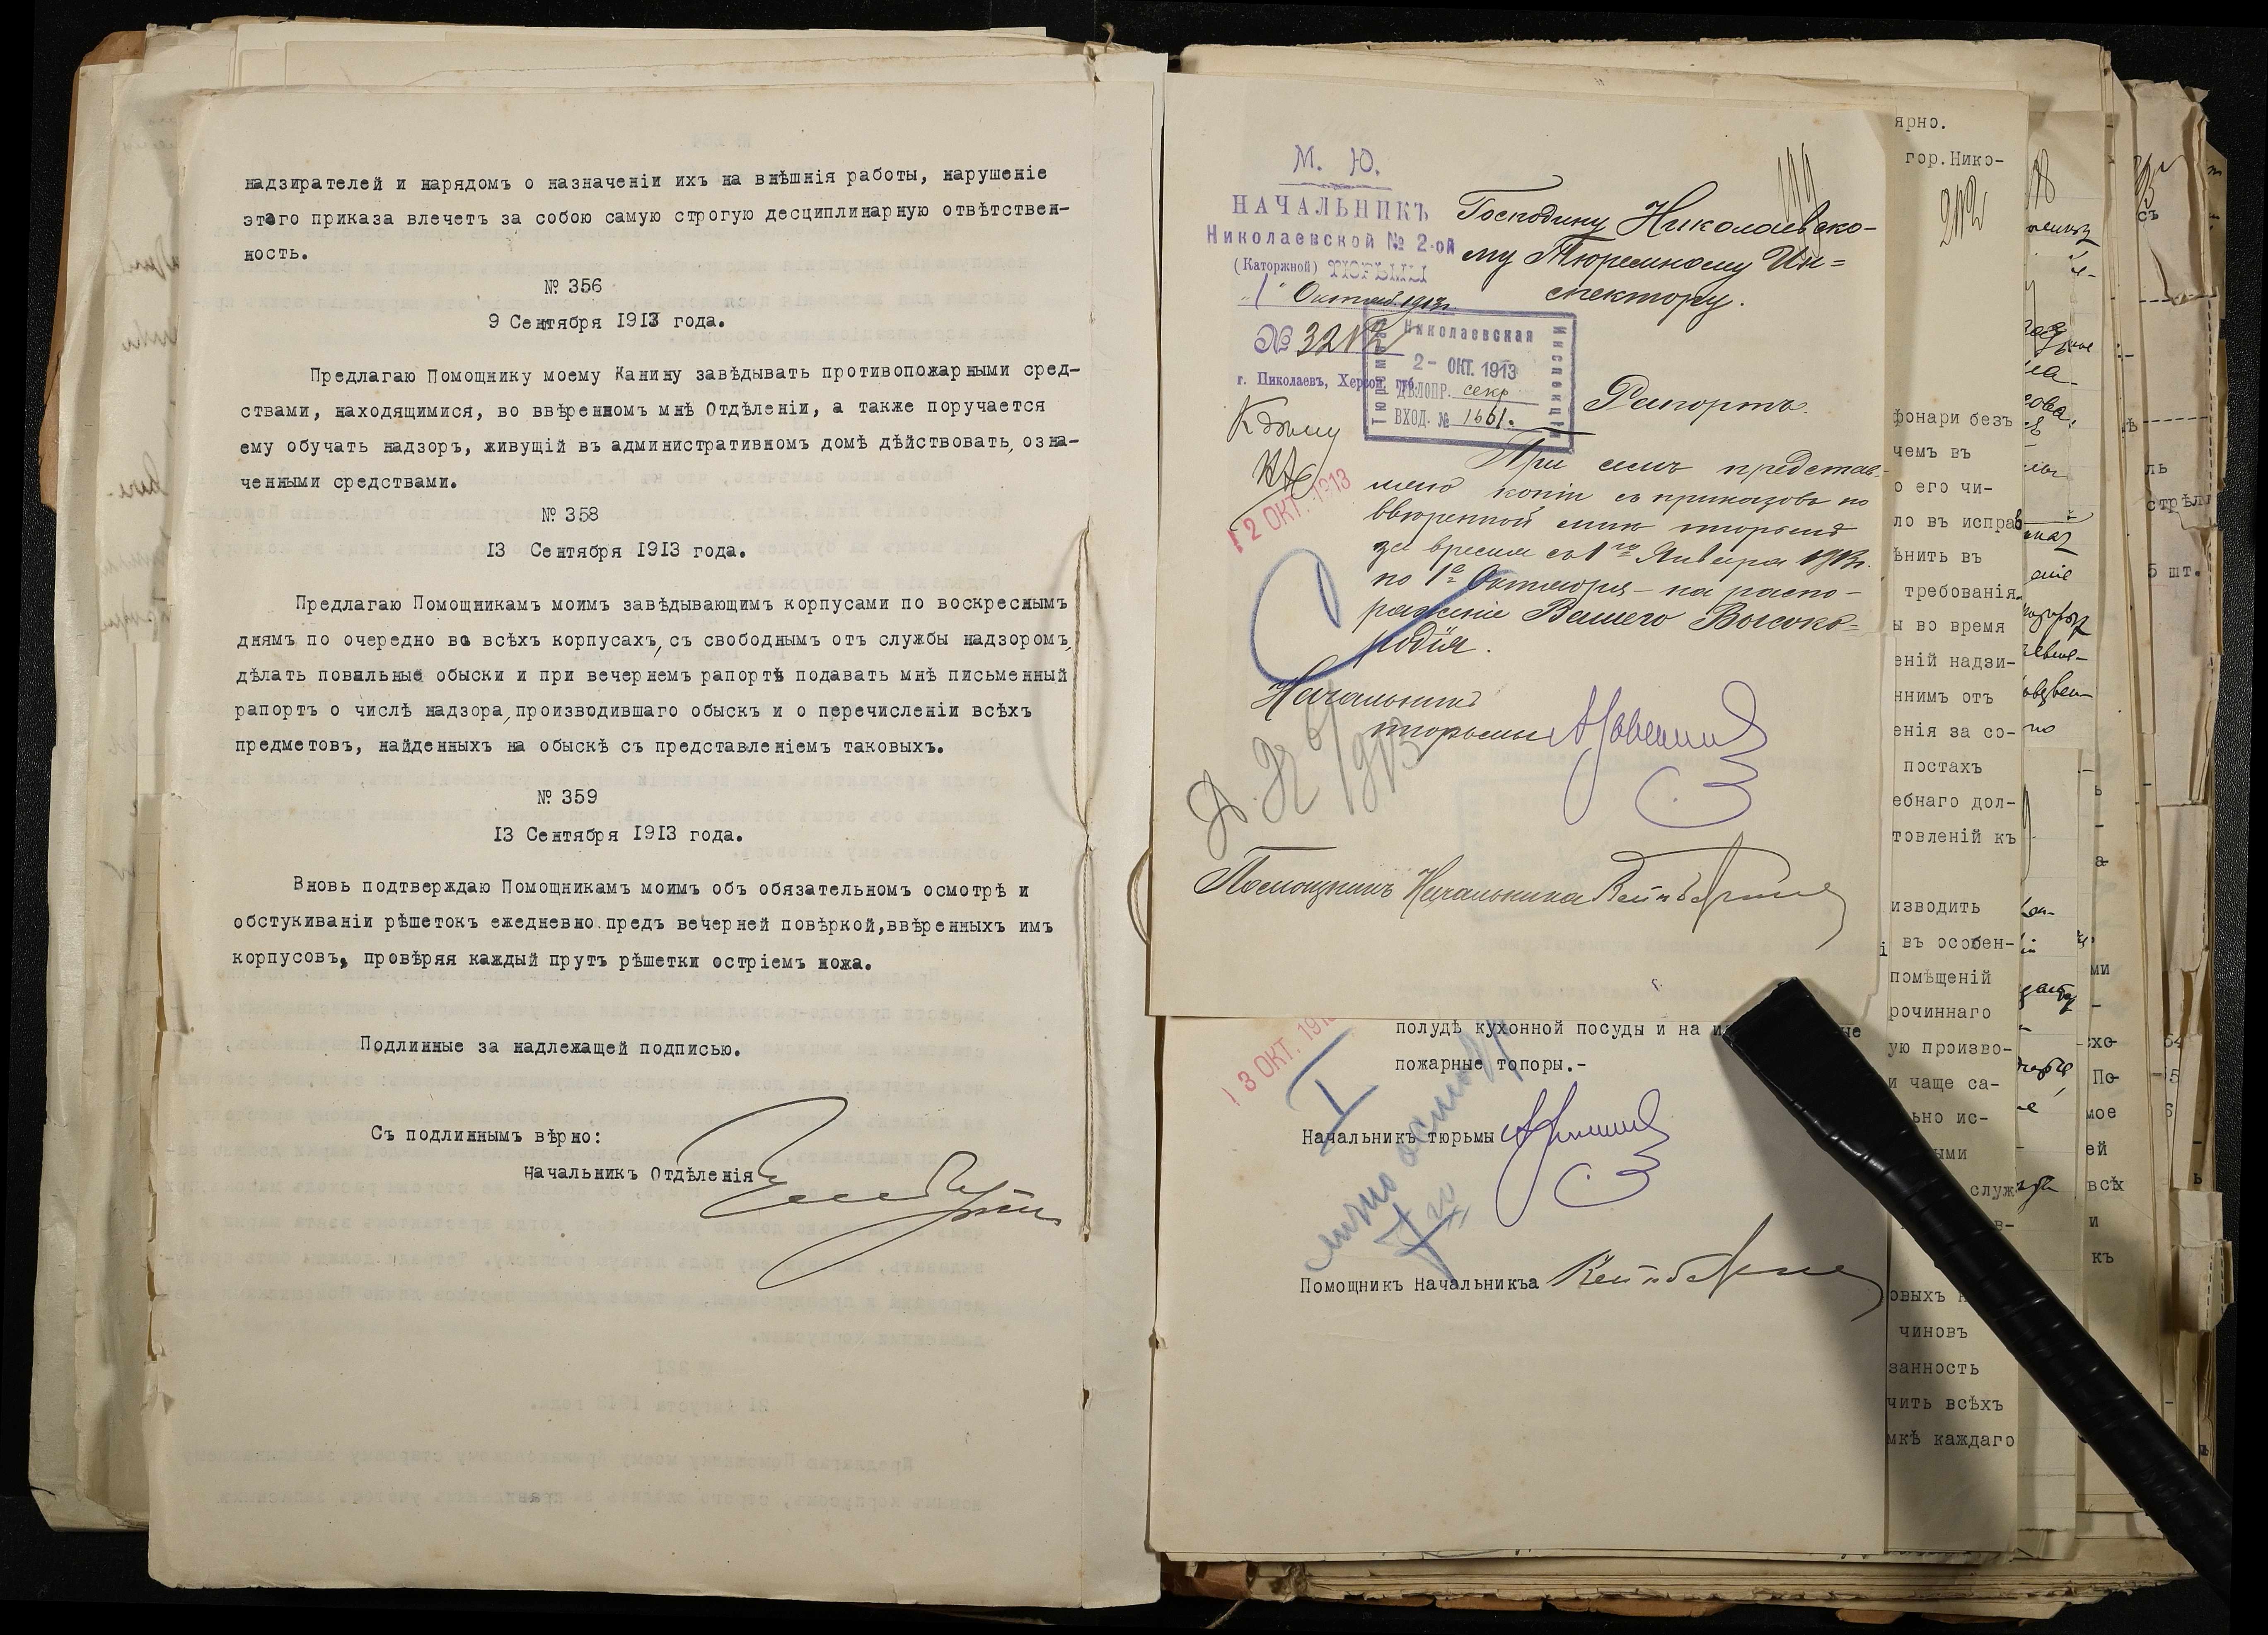 надзирателей и нарядомъ о назначеніи ихъ на внѣшнія работы, нарушеніе
этого приказа влечетъ за собою самую строгую десциплинарную отвѣтствен-
ность.
№ 356
9 Сентября 1913 года.
Предлагаю Помощнику моему Канину завѣдывать противопожарными сред-
ствами, находящимися, во ввѣренномъ мнѣ Отдѣленіи, а также поручается
ему обучать надзоръ, живущій въ административномъ домѣ дѣйствовать, озна-
ченными средствами.
№ 358
13 Сентября 1913 года.
Предлагаю Помощникамъ моимъ завѣдывающимъ корпусами по воскреснымъ
днямъ по очередно во всѣхъ корпусахъ, съ свободнымъ отъ службы надзоромъ,
дѣлать повальные обыски и при вечернемъ рапортѣ подавать мнѣ письменный
рапортъ о числѣ надзора, производившаго обыскъ и о перечисленіи всѣхъ
предметовъ, найденныхъ на обыскѣ съ представленіемъ таковыхъ.
№ 359
13 Сентября 1913 года.
Вновь подтверждаю Помощникамъ моимъ объ обязательномъ осмотрѣ и
обстукиваніи рѣшетокъ ежедневно предъ вечерней повѣркой, ввѣренныхъ имъ
корпусовъ, провѣряя каждый прутъ рѣшетки остріемъ ножа.
Подлинные за надлежащей подписью.
Съ подлиннымъ вѣрно:
Начальникъ Отдѣленія
М. Ю.
НАЧАЛЬНИКЪ
Николаевской № 2-ой
(Каторжной) ТЮРЬМЫ
„1" Октяб. 1913г.
№ 3212
г. Николаевъ, Херсон. губ.
Господину Николаевско-
му Тюремному Ин=
спектору.
Николаевская
Тюремная
Инспекція
2- ОКТ. 1913
ДѢЛОПР. секр
ВХОД. № 1661.
Къ дѣлу
2 ОКТ. 1913
Рапортъ.
При семъ представ-
ляю копіи съ приказовъ по
ввѣренной мнѣ тюрьмѣ
за время съ 1го Января 1913г.
по 1е Октября – на распо-
ряженіе Вашего Высоко=
родія.
Начальникъ
тюрьмы
Помощникъ Начальника
полудѣ кухонной посуды и на
пожарные топоры.-
3 ОКТ. 191
Начальникъ тюрьмы
Помощникъ Начальникъа
ярно.
гор. Нико-
фонари безъ
чемъ въ
о его чи-
ло въ исправ
ѣнить въ
требованія.
ы во время
еній надзи-
ннимъ отъ
енія за со-
постахъ
ебнаго дол-
товленій къ
изводить
і въ особен-
помѣщеній
рочиннаго
ую произво-
и чаще са-
ьно ис-
ыми
служ
овыхъ
чиновъ
занность
чить всѣхъ
мкѣ каждаго